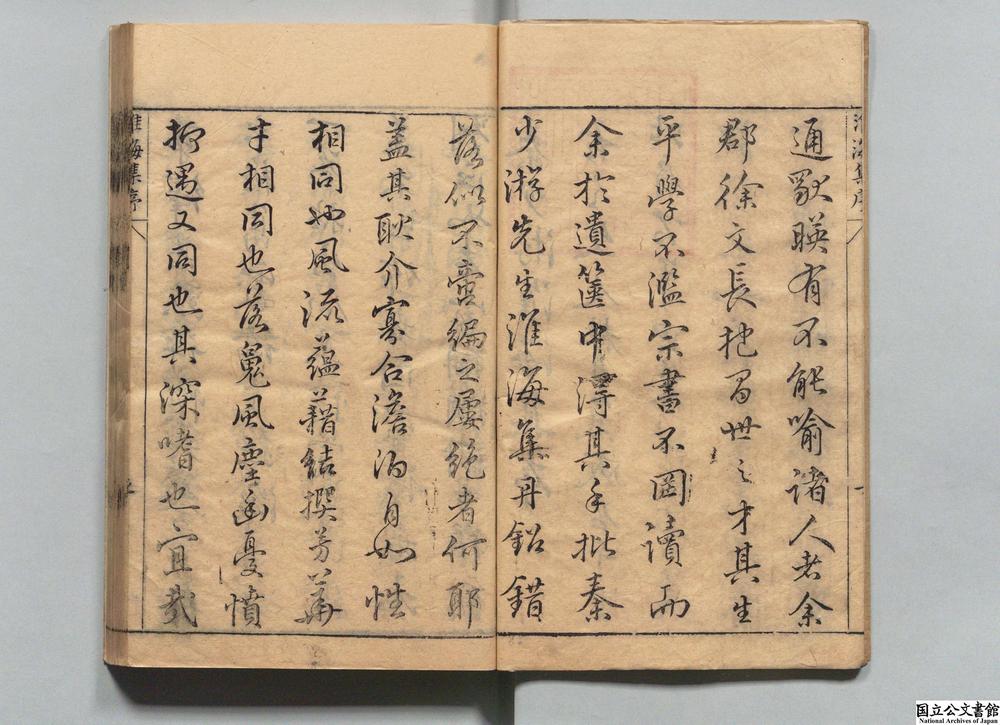 淮海集序
通歠暎有不能喻諸人者余
郡徐文長抱曷世之才其生
平學不濫宗書不罔讀而
余於遺篋中淂其手批秦
少游先生淮海集丹鉛錯
落似不啻編之屢絶者何耶
蓋其耿介寡合澹泊自如性
相同也風流蘊藉結撰芳華
才相同也落魄風塵幽憂憤
抑遇又同也其深嗜也宜哉
淮海集序
国立公文書館
National Archives of Japan